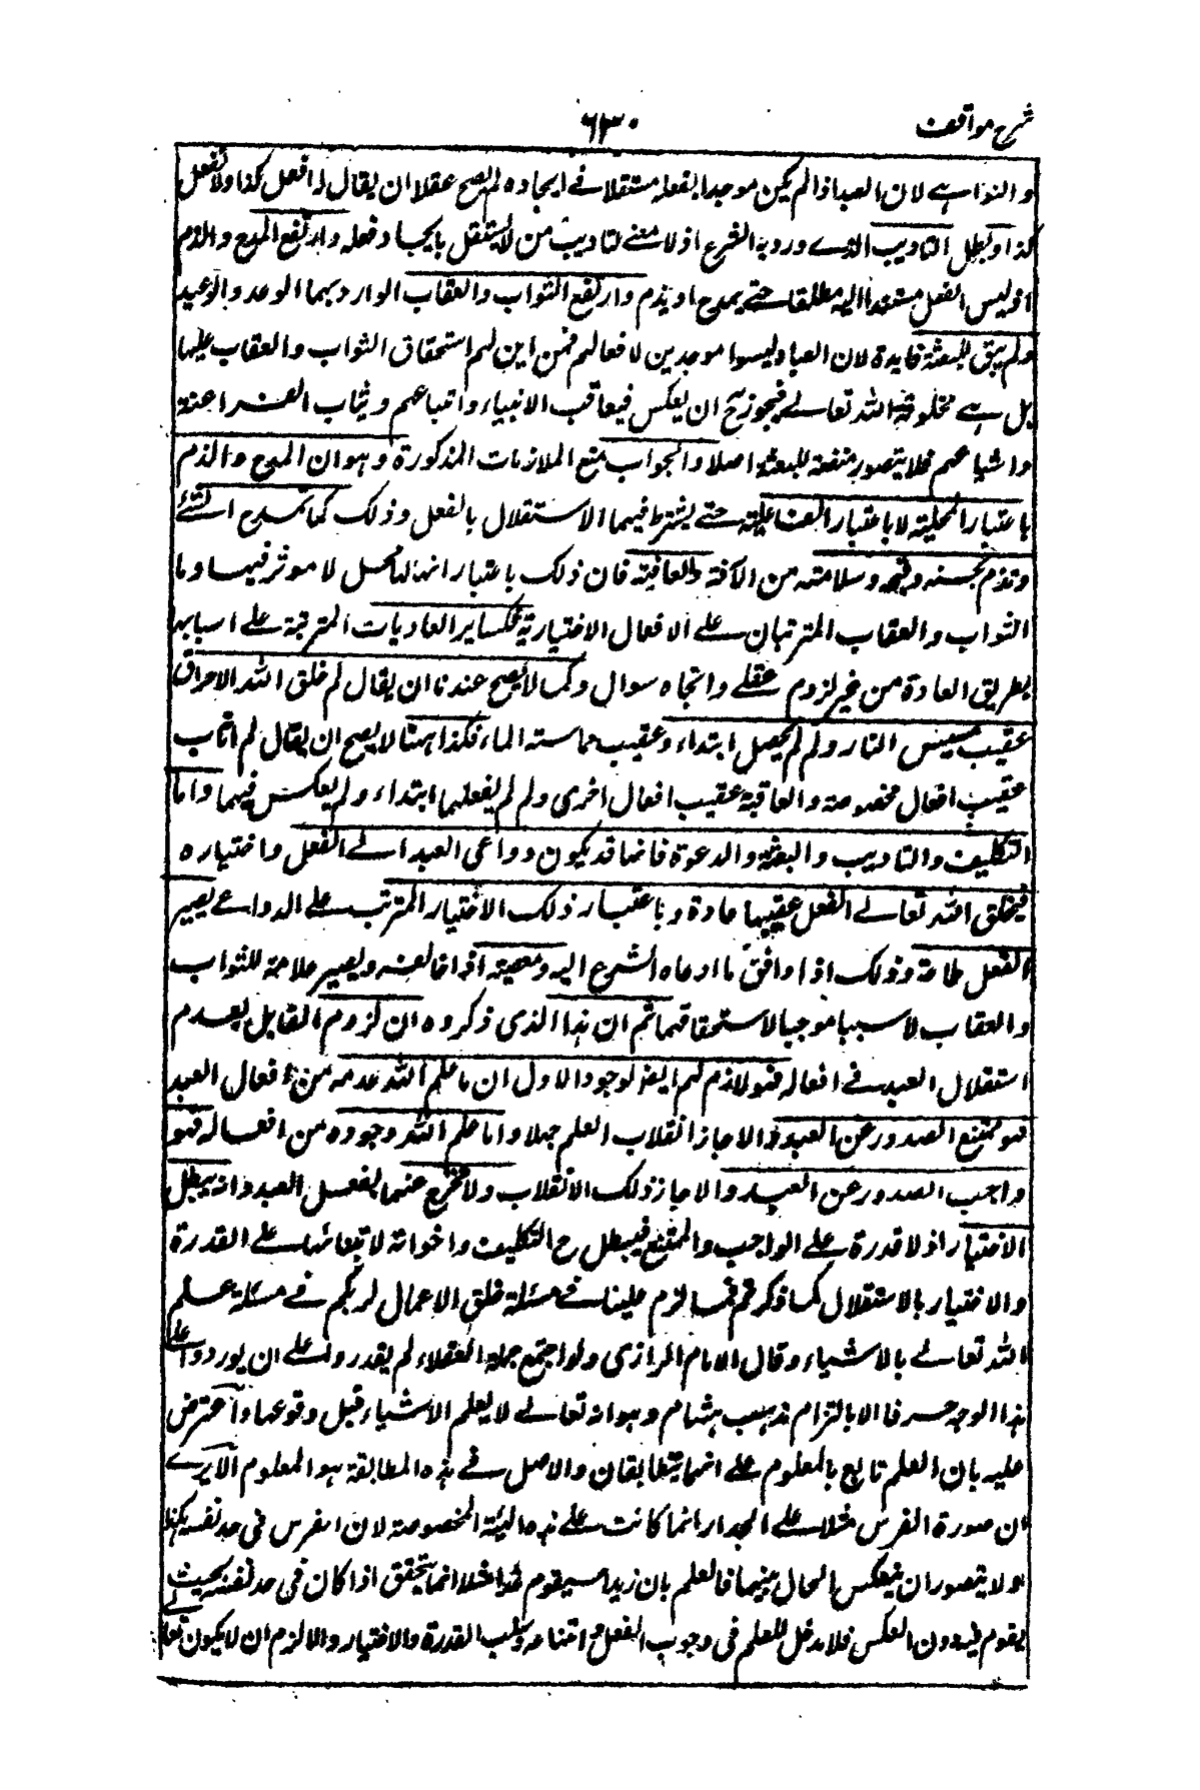 شرح مواقف
٦٣٠
والنواهى لان العبد اذا لم يكن موجدا لفعله مستقلا فى ايجاده لم يصح عقلا ان يقال له افعل كذا ولا تفعل
كذا وبطل التاديب الذى ورد به الشرع اذ لا معنى لتاديب من لا يستقل بايجاد فعله وارتفع المدح والذم
اذ ليس الفعل مستندا اليه مطلقا حتى يمدح او يذم وارتفع الثواب والعقاب الوارد بهما الوعد والوعيد
ولم يبق للبعثة فايدة لان العباد ليسوا موجدين لافعالهم فمن اين لهم استحقاق الثواب والعقاب عليها
بل هى مخلوقة الله تعالى فيجوز ح ان يعكس فيعاقب الانبياء واتباعهم ويثاب الفراعنة
واشياعهم فلا يتصور منفعة للبعثة اصلا والجواب منع الملازمات المذكورة وهو ان المدح والذم
باعتبار المحلية لا باعتبار الفاعلية حتى يشترط فيهما الاستقلال بالفعل وذلك كما تمدح الشئ
وتذم بحسنه وقبحه وسلامته من الآفة والعافية فان ذلك باعتبار انه محل لا موثر فيها وما
الثواب والعقاب المترتبان على الافعال الاختيارية فكساير العاديات المترتبة على اسبابها
بطريق العادة من غير لزوم عقلى واتجاه سوال وكما لا يصح عندنا ان يقال لم خلق الله الاحراق
عقيب مسيس النار ولم لم يحصل ابتداء وعقيب مماسته الماء فكذا ههنا لا يصح ان يقال لم اثاب
عقيب افعال مخصوصة والعاقبة عقيب افعال اخرى ولم لم يفعلهما ابتداء ولم يعكس فيهما واما
التكليف والتاديب والبعثة والدعوة فانها قد يكون دواعى العبد الى الفعل واختياره
فيخلق الله تعالى الفعل عقيبها عادة وباعتبار ذلك الاختيار المترتب على الدواعى يصير
الفعل طاعة وذلك اذا وافق ما ادعاه الشرع اليه ومعصية اذا خالفه ويصير علامة للثواب
والعقاب لا سببا موجبا لاستحقاقهما ثم ان هذا الذى ذكروه ان لزوم القايل بعدم
استقلال العبد فى افعاله فهو لازم لهم ايضا لوجوه الاول ان ما علم الله عدمه من افعال العبد
فهو ممتنع الصدور عن العبد والا جاز انقلاب العلم جهلا وما علم الله وجوده من افعاله فهو
واجب الصدور عن العبد والا جاز ذلك الانقلاب ولا مخرج عنهما لفعل العبد وانه يبطل
الاختيار اذ لا قدرة على الواجب والممتنع فيبطل ح التكليف واخواته لابتنائها على القدرة
والاختيار بالاستقلال كما ذكرتم فما لزم علينا فى مسئلة خلق الاعمال لزمكم فى مسئلة علم
الله تعالى بالاشياء وقال الامام الرازى ولو اجتمع جملة العقلاء لم يقدروا على ان يوردوا على
هذا الوجه حرفا الا بالتزام مذهب هشام وهو انه تعالى لا يعلم الاشياء قبل وقوعها واعترض
عليه بان العلم تابع بالمعلوم على انهما يتطابقان والاصل فى هذه المطابقة هو المعلوم الا يرى
ان صورة الفرس مثلا على الجدار انما كانت على هذه الهيئة المخصوصة لان الفرس فى حد نفسه هكذا
ولا يتصور ان ينعكس الحال بينهما فالعلم بان زيدا سيقوم غدا مثلا انما يتحقق اذا كان فى حد نفسه بحيث
يقوم فيه دون العكس فلا مدخل للعلم فى وجوب الفعل وامتناعه وسلب القدرة والاختيار والا لزم ان لا يكون تعالى